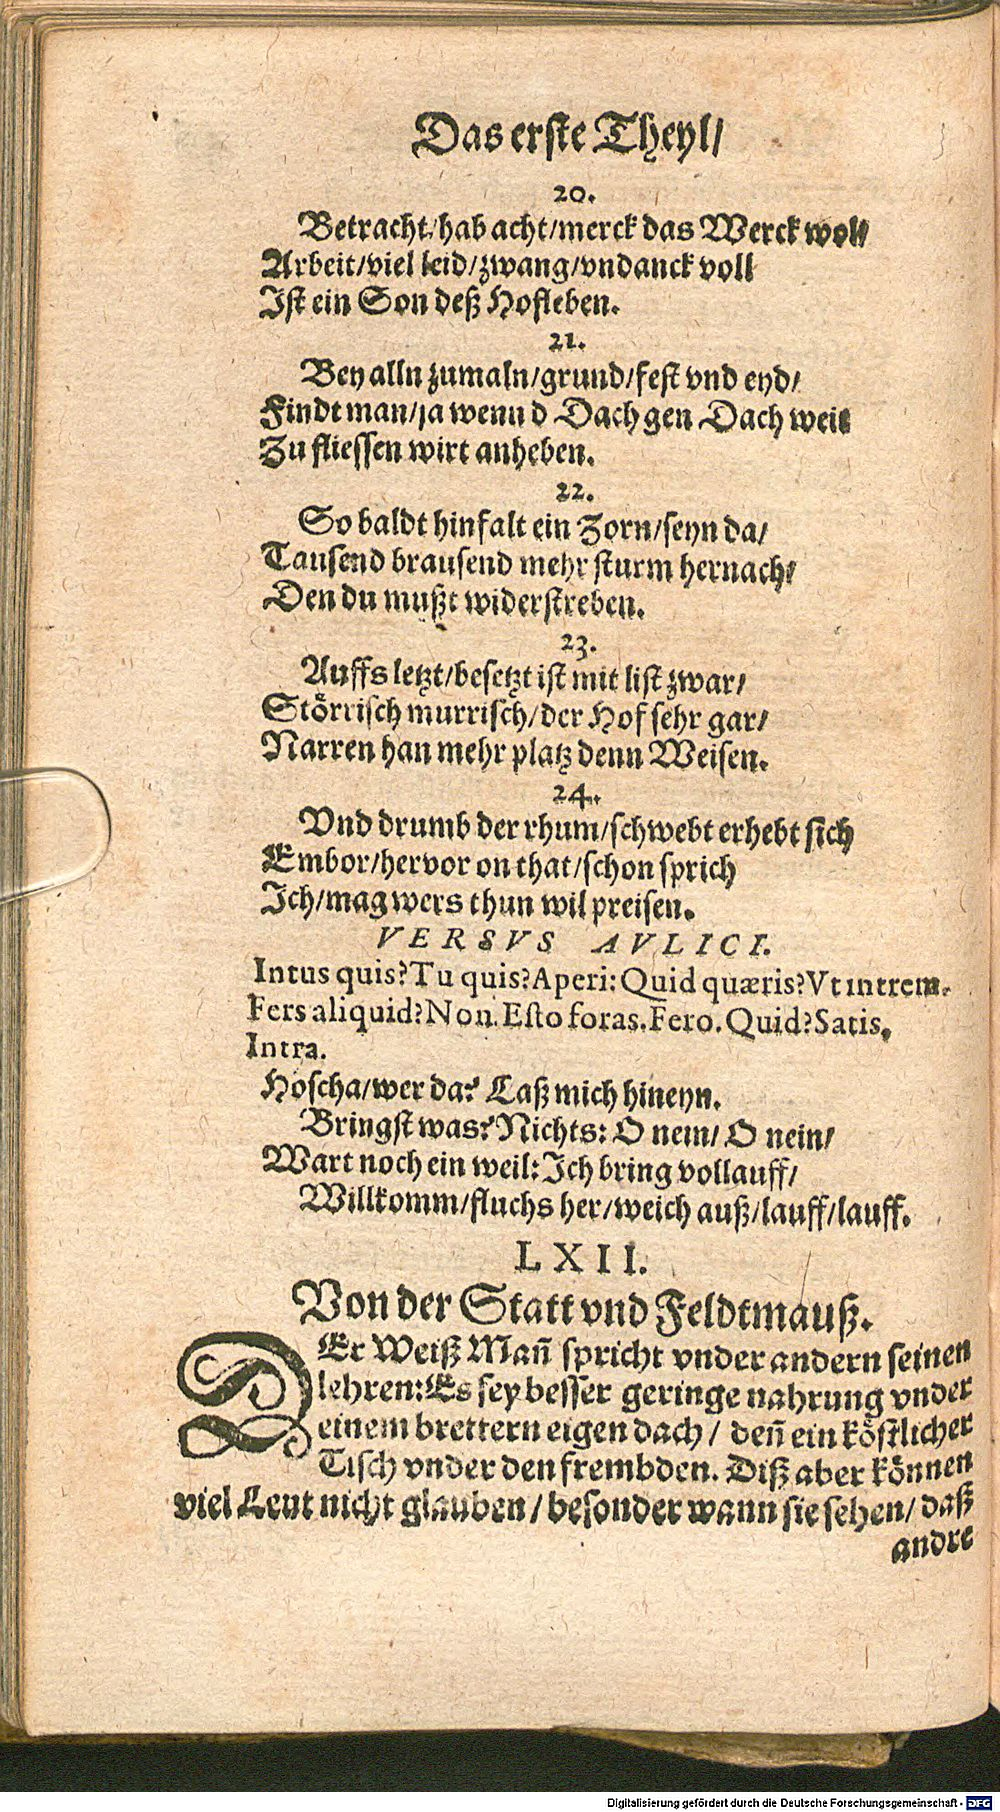 Das erste Theyl/
20.
Betracht/hab acht/merck das Werck wol/
Arbeit/viel leid/zwang/vndanck voll
Ist ein Son deß Hofleben.
21.
Bey alln zumaln/grund/fest vnd eyd/
Findt man/ja wenn d Dach gen Dach weit
Zu fliessen wirt anheben.
22.
So baldt hinfalt ein Zorn/seyn da/
Tausend brausend mehr sturm hernach/
Den du mußt widerstreben.
23.
Auffs letzt/besetzt ist mit list zwar/
Störrisch murrisch/der Hof sehr gar/
Narren han mehr platz denn Weisen.
24.
Vnd drumb der rhum/schwebt erhebt sich
Embor/hervor on that/schon sprich
Ich/mag wers thun wil preisen.
VERSVS AVLICI.
Intus quis? Tu quis? Aperi: Quid quæris? Vt intrem.
Fers aliquid? Non. Esto foras. Fero. Quid? Satis.
Intra.
Hoscha/wer da? Laß mich hineyn.
Bringst was? Nichts: O nein/ O nein/
Wart noch ein weil: Ich bring vollauff/
Willkomm/fluchs her/weich auß/lauff/lauff.
LXII.
Von der Statt vnd Feldtmauß.
DEr Weiß Mañ spricht vnder andern seinen
lehren: Es sey besser geringe nahrung vnder
einem brettern eigen dach/ deñ ein köstlicher
Tisch vnder den frembden. Diß aber können
viel Leut nicht glauben/ besonder wann sie sehen/ daß
andre
Digitalisierung gefördert durch die Deutsche Forschungsgemeinschaft - DFG